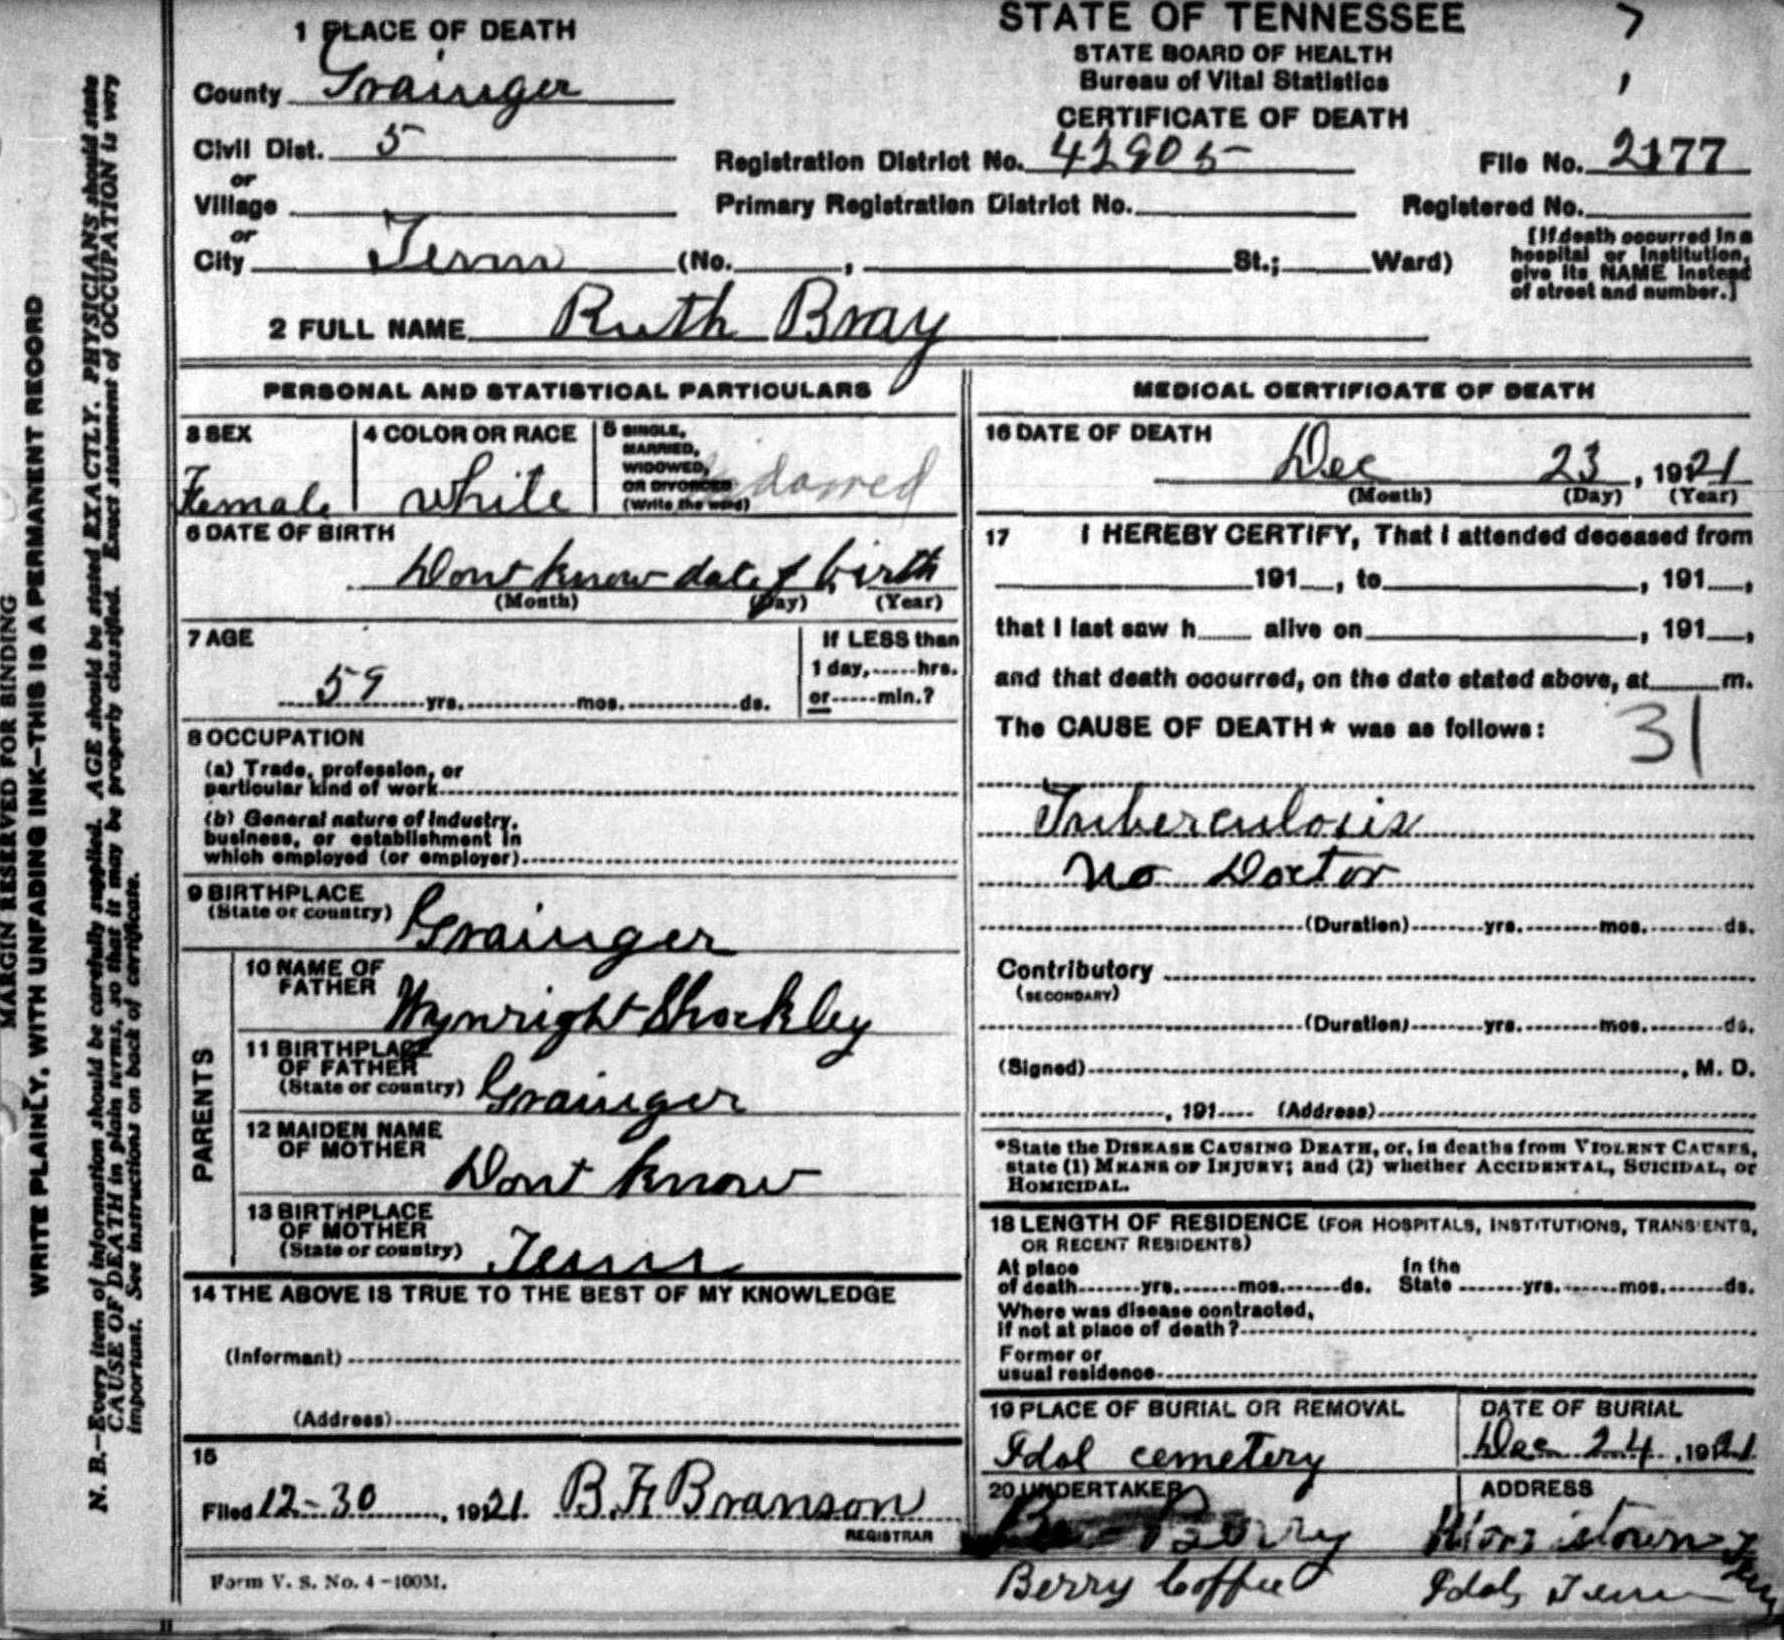 MARGIN RESERVED FOR BINDING
WRITE PLAINLY, WITH UNFADING INK—THIS IS A PERMANENT RECORD
N. B.—Every item of information should be carefully supplied. AGE should be stated EXACTLY. PHYSICIANS should state
CAUSE OF DEATH in plain terms, so that it may be properly classified. Exact statement of OCCUPATION is very
important. See instructions on back of certificate.
1 PLACE OF DEATH
County Grainger
Civil Dist. 5
or
Village
or
City Tenn (No. , St.; Ward)
STATE OF TENNESSEE
STATE BOARD OF HEALTH
Bureau of Vital Statistics
CERTIFICATE OF DEATH
Registration District No. 42905
File No. 2177
Primary Registration District No.
Registered No.
[If death occurred in a
hospital or institution,
give its NAME instead
of street and number.]
2 FULL NAME Ruth Bray
PERSONAL AND STATISTICAL PARTICULARS
3 SEX
Female
4 COLOR OR RACE
White
5 SINGLE,
MARRIED,
WIDOWED,
OR DIVORCED
(Write the word)
6 DATE OF BIRTH
Dont know date of birth
(Month) (Day) (Year)
7 AGE
59 yrs. mos. ds.
If LESS than
1 day, hrs.
or min.?
8 OCCUPATION
(a) Trade, profession, or
particular kind of work
(b) General nature of industry,
business, or establishment in
which employed (or employer)
9 BIRTHPLACE
(State or country) Grainger
PARENTS
10 NAME OF
FATHER Wynright Shockley
11 BIRTHPLACE
OF FATHER
(State or country) Grainger
12 MAIDEN NAME
OF MOTHER Dont know
13 BIRTHPLACE
OF MOTHER
(State or country) Tenn
14 THE ABOVE IS TRUE TO THE BEST OF MY KNOWLEDGE
(Informant)
(Address)
15
Filed 12-30, 1921. B.F. Branson
REGISTRAR
Form V. S. No. 4-100M.
MEDICAL CERTIFICATE OF DEATH
16 DATE OF DEATH
Dec 23, 1921
(Month) (Day) (Year)
17 I HEREBY CERTIFY, That I attended deceased from
191 , to , 191 ,
that I last saw h alive on , 191 ,
and that death occurred, on the date stated above, at m.
The CAUSE OF DEATH* was as follows: 31
Tuberculosis
No Doctor
(Duration) yrs. mos. ds.
Contributory
(SECONDARY)
(Duration) yrs. mos. ds.
(Signed) , M. D.
, 191 (Address)
*State the DISEASE CAUSING DEATH, or, in deaths from VIOLENT CAUSES,
state (1) MEANS OF INJURY; and (2) whether ACCIDENTAL, SUICIDAL, or
HOMICIDAL.
18 LENGTH OF RESIDENCE (FOR HOSPITALS, INSTITUTIONS, TRANSIENTS,
OR RECENT RESIDENTS)
At place
of death yrs. mos. ds.
In the
State yrs. mos. ds.
Where was disease contracted,
if not at place of death?
Former or
usual residence
19 PLACE OF BURIAL OR REMOVAL
Idol cemetery
DATE OF BURIAL
Dec 24, 1921
20 UNDERTAKER
Berry
Berry Coffee
ADDRESS
Morristown Tenn
Idol, Tenn